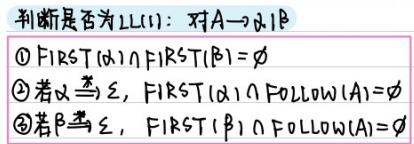 判断是否为LL(1): 对A→α|β
① FIRST(α)∩FIRST(β)=∅
②若α⇒*ε, FIRST(α)∩FOLLOW(A)=∅
③若β⇒*ε, FIRST(β)∩FOLLOW(A)=∅